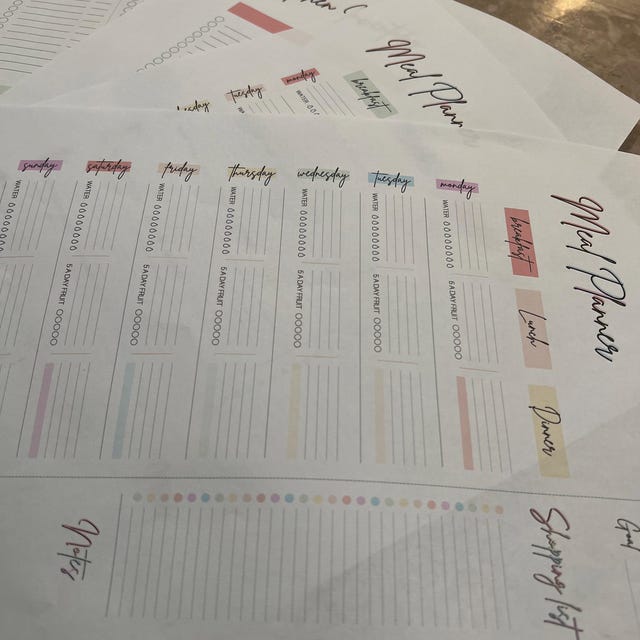 Meal Planner
breakfast
Lunch
Dinner
monday
WATER
5 A DAY FRUIT
tuesday
WATER
5 A DAY FRUIT
wednesday
WATER
5 A DAY FRUIT
thursday
WATER
5 A DAY FRUIT
friday
WATER
5 A DAY FRUIT
saturday
WATER
5 A DAY FRUIT
sunday
WATER
Shopping list
Notes
Goal
Meal Plann
breakfast
monday
WATER
tuesday